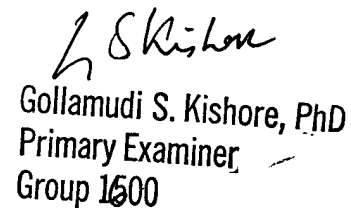 G S Kishore
Gollamudi S. Kishore, PhD
Primary Examiner
Group 1600